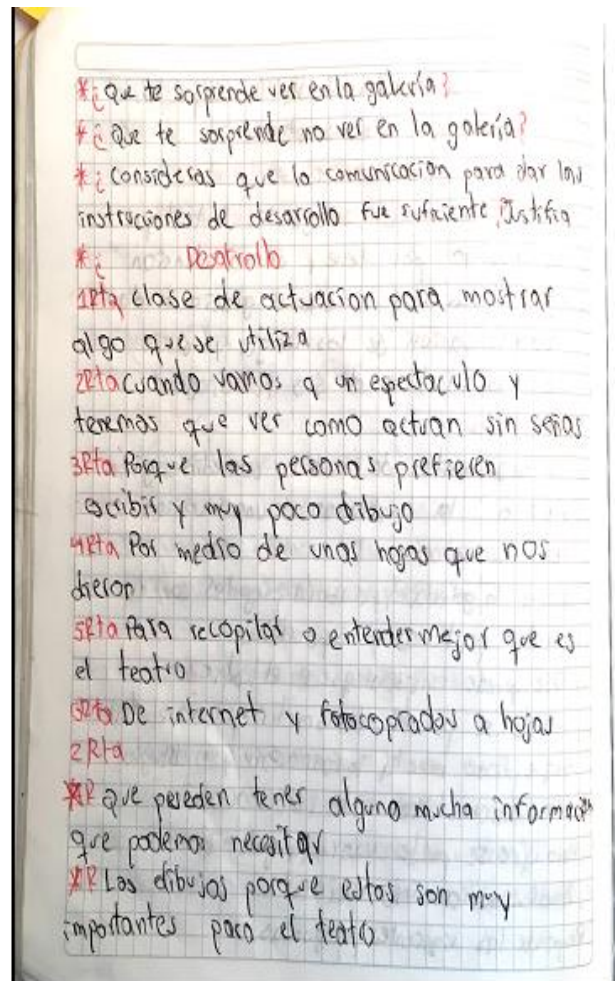 *¿Que te sorprende ver en la galería?
*¿Que te sorprende no ver en la galería?
*¿consideras que la comunicación para dar las
instrucciones de desarrollo fue suficiente, Justifia
*¿ Desarrollo
1Rta clase de actuacion para mostrar
algo que se utiliza
2Rta cuando vamos a un espectaculo y
tenemos que ver como actuan sin señas
3Rta Porque las personas prefieren
escribir y muy poco dibujo
4Rta Por medio de unas hojas que nos
dieron
5Rta Para recopilar o entender mejor que es
el teatro
6Rta De internet y fotocopiados a hojas
2Rta
*R que pueden tener alguno mucha información
que podemos necesitar
*R Los dibujos porque estos son muy
importantes para el teatro